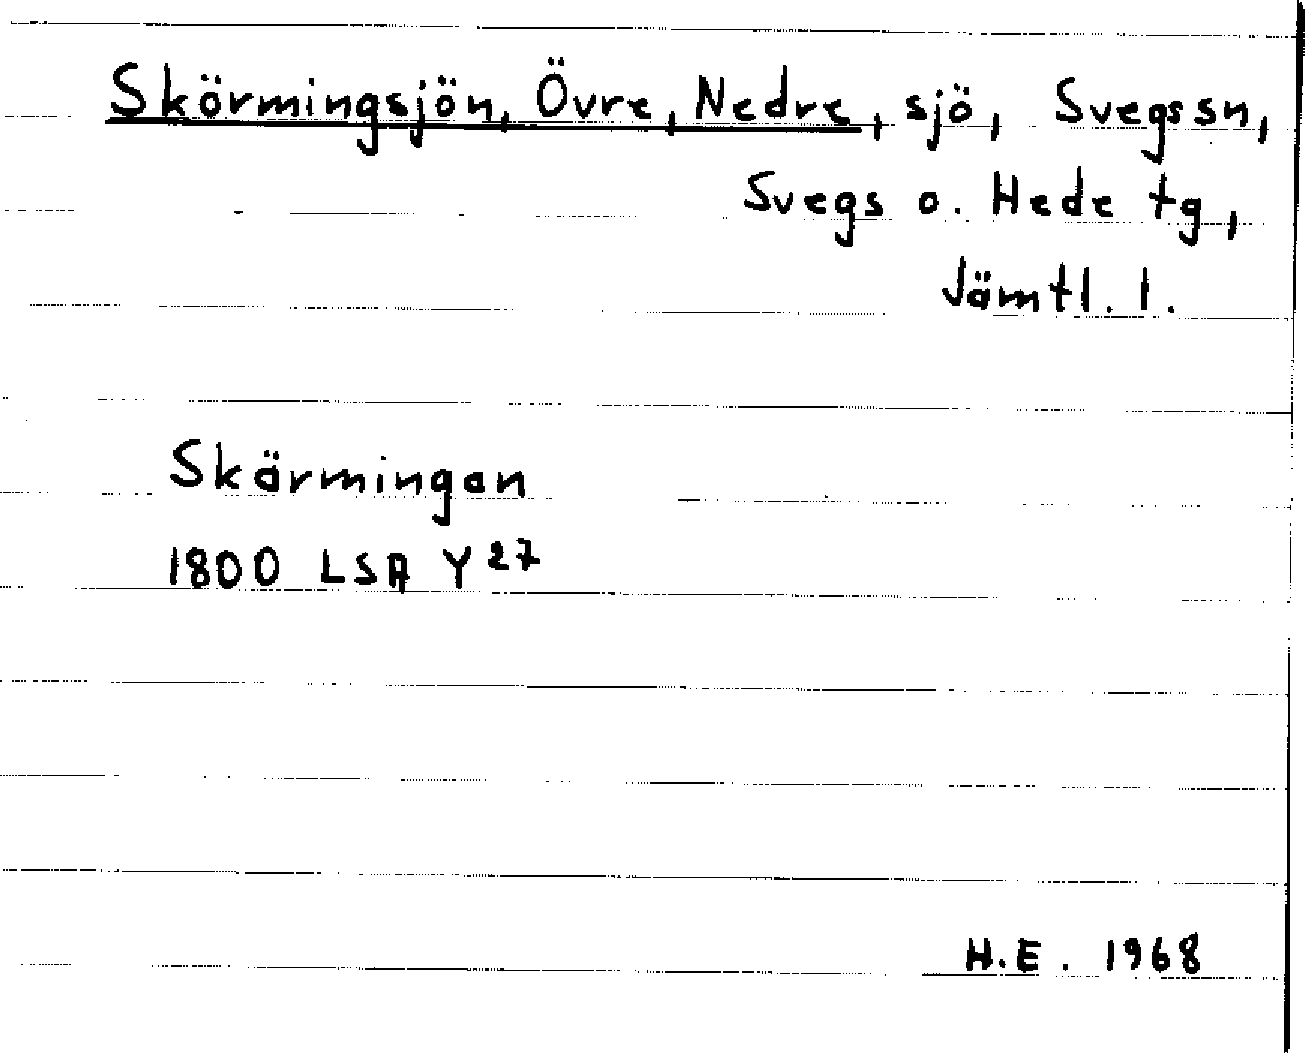 Skörmingsjön, Övre, Nedre, sjö, Svegs sn,
Svegs o. Hede tg,
Jämtl. l.
Skörmingan
1800 LSA Y 27
H.E. 1968